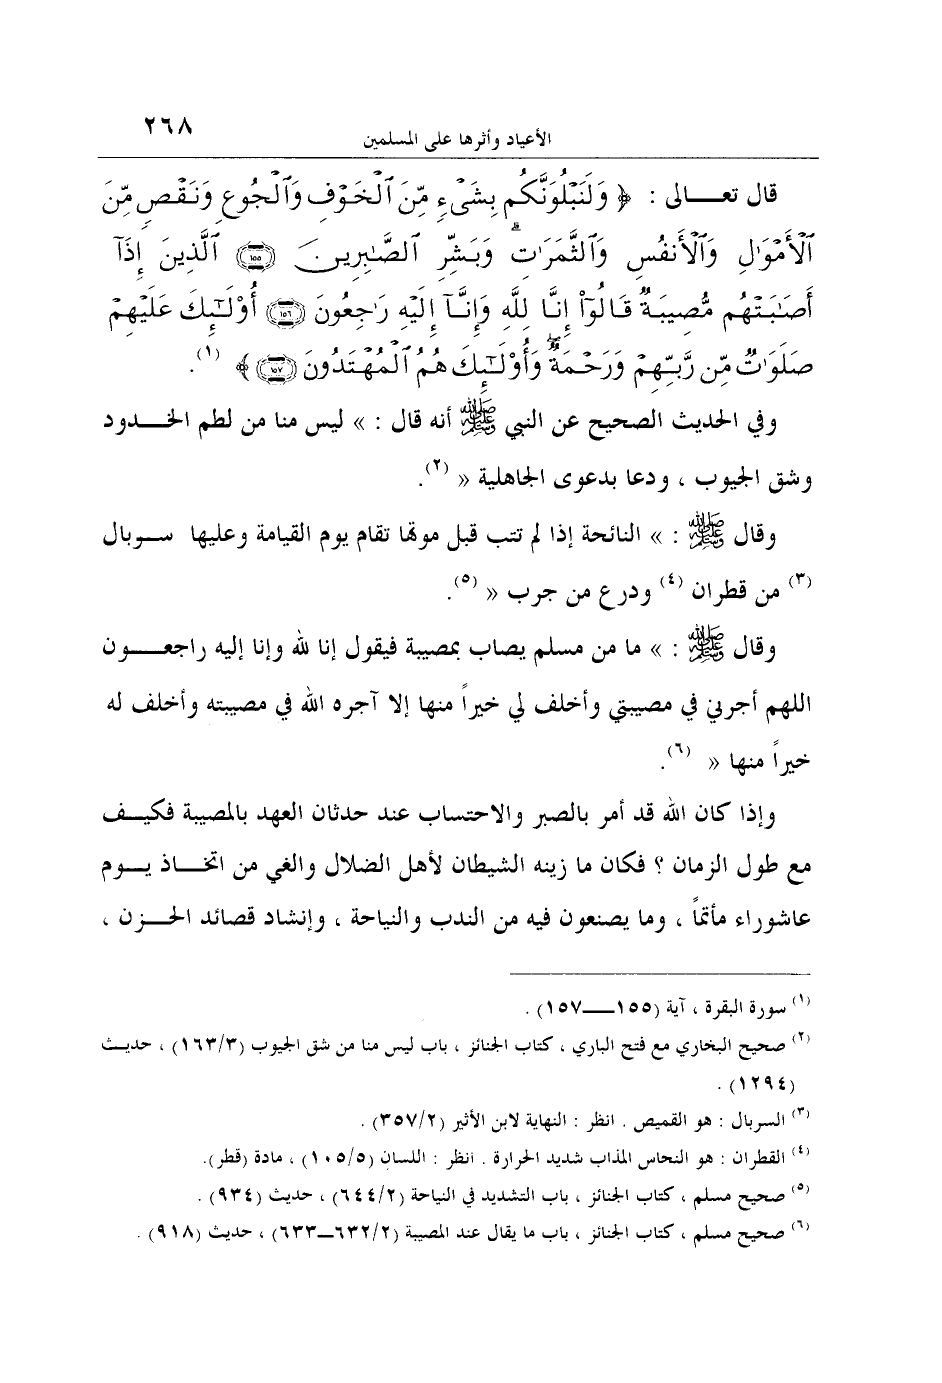 ٢٦٨
الأعياد وأثرها على المسلمين
قال تعـــالى : ﴿ وَلَنَبْلُوَنَّكُم بِشَىْءٍ مِّنَ ٱلْخَوْفِ وَٱلْجُوعِ وَنَقْصٍ مِّنَ
ٱلْأَمْوَٰلِ وَٱلْأَنفُسِ وَٱلثَّمَرَٰتِ ۗ وَبَشِّرِ ٱلصَّـٰبِرِينَ ١٥٥ ٱلَّذِينَ إِذَآ
أَصَـٰبَتْهُم مُّصِيبَةٌ قَالُوٓا۟ إِنَّا لِلَّهِ وَإِنَّآ إِلَيْهِ رَٰجِعُونَ ١٥٦ أُو۟لَـٰٓئِكَ عَلَيْهِمْ
صَلَوَٰتٌ مِّن رَّبِّهِمْ وَرَحْمَةٌ ۖ وَأُو۟لَـٰٓئِكَ هُمُ ٱلْمُهْتَدُونَ ١٥٧ ﴾ (١).
وفي الحديث الصحيح عن النبي ﷺ أنه قال : » ليس منا من لطم الخـــدود
وشق الجيوب ، ودعا بدعوى الجاهلية « (٢).
وقال ﷺ : » النائحة إذا لم تتب قبل موتها تقام يوم القيامة وعليها سـربال
(٣) من قطران (٤) ودرع من جرب « (٥).
وقال ﷺ : » ما من مسلم يصاب بمصيبة فيقول إنا لله وإنا إليه راجعـــون
اللهم أجرني في مصيبتي وأخلف لي خيراً منها إلا آجره الله في مصيبته وأخلف له
خيراً منها « (٦).
وإذا كان الله قد أمر بالصبر والاحتساب عند حدثان العهد بالمصيبة فكيـف
مع طول الزمان ؟ فكان ما زينه الشيطان لأهل الضلال والغي من اتخـاذ يـوم
عاشوراء مأتماً ، وما يصنعون فيه من الندب والنياحة ، وإنشاد قصائد الحـزن ،
(١) سورة البقرة ، آية (١٥٥ــ١٥٧) .
(٢) صحيح البخاري مع فتح الباري ، كتاب الجنائز ، باب ليس منا من شق الجيوب (١٦٣/٣) ، حديـث
(١٢٩٤) .
(٣) السربال : هو القميص . انظر : النهاية لابن الأثير (٣٥٧/٢) .
(٤) القطران : هو النحاس المذاب شديد الحرارة . انظر : اللسان (١٠٥/٥) ، مادة (قطر).
(٥) صحيح مسلم ، كتاب الجنائز ، باب التشديد في النياحة (٦٤٤/٢) ، حديث (٩٣٤) .
(٦) صحيح مسلم ، كتاب الجنائز ، باب ما يقال عند المصيبة (٦٣٢/٢ــ٦٣٣) ، حديث (٩١٨) .